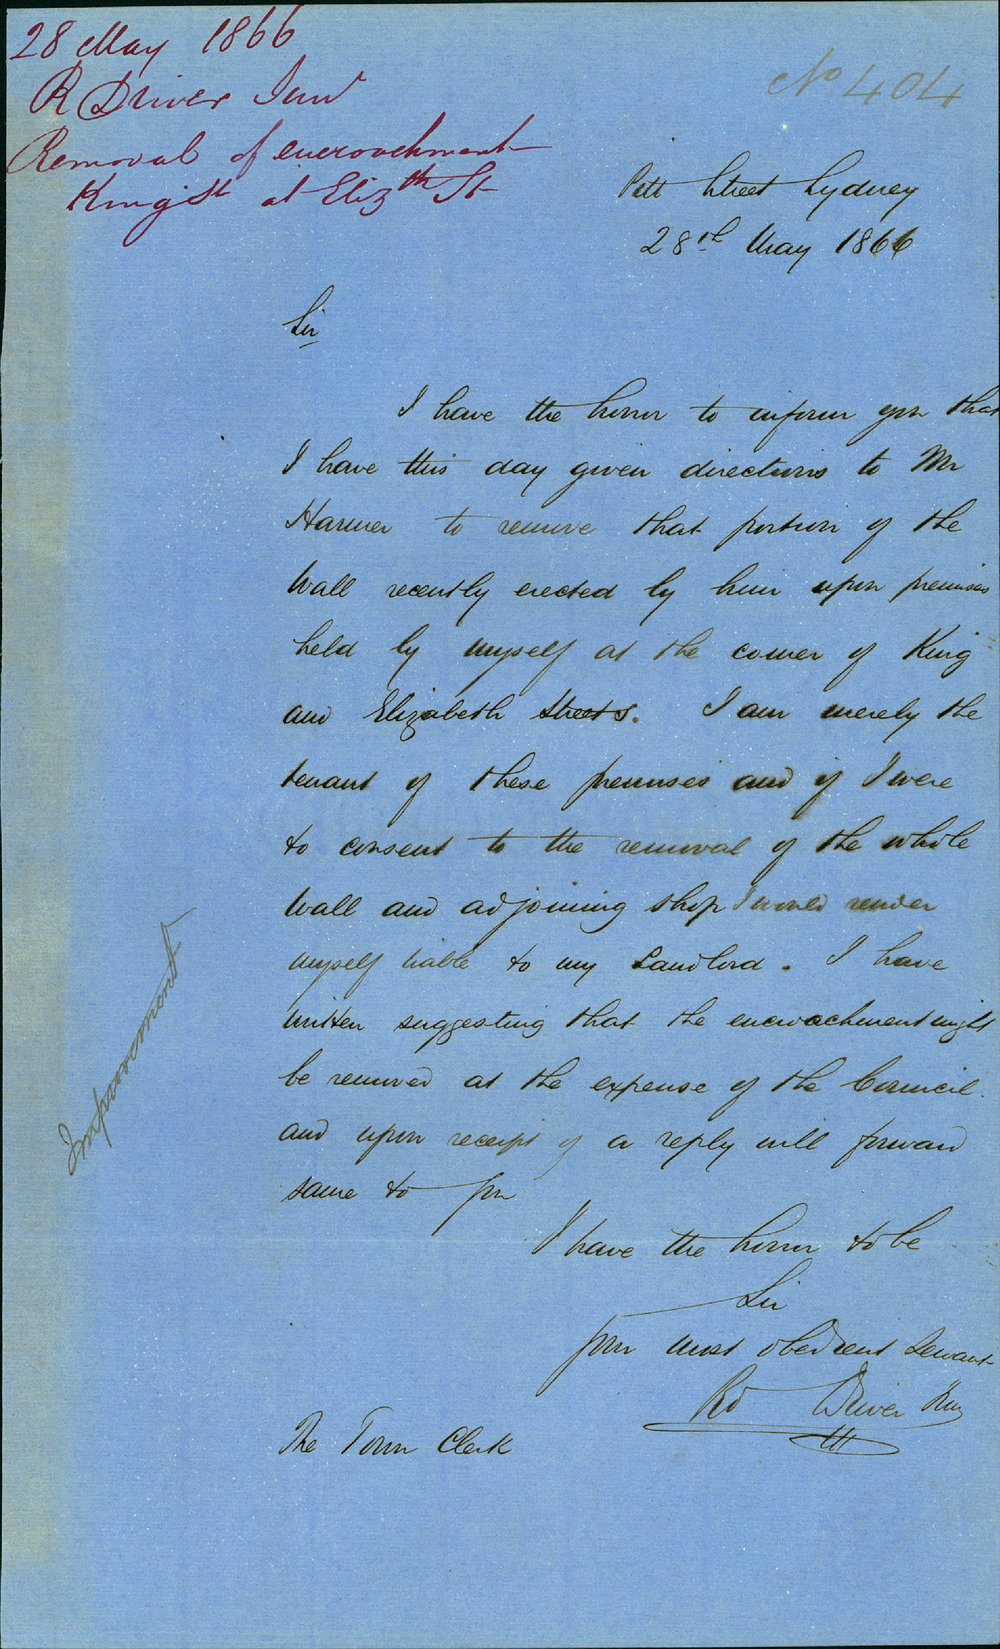 28 May 1866
R Driver Junr
Removal of encroachment
King St at Elizth St
No 404
Pitt Street Sydney
28th May 1866
Sir
I have the honor to inform you that
I have this day given directions to Mr
Harmer to remove that portion of the
Wall recently erected by him upon premises
held by myself at the corner of King
and Elizabeth Streets. I am merely the
tenant of these premises and if I were
to consent to the removal of the whole
Wall and adjoining shop I would render
myself liable to my Landlord. I have
written suggesting that the encroachment might
be removed at the expense of the Council.
and upon receipt of a reply will forward
same to you
I have the honor to be
Sir
Your most obedient Servant
Rd Driver Junr
The Town Clerk
Improvement